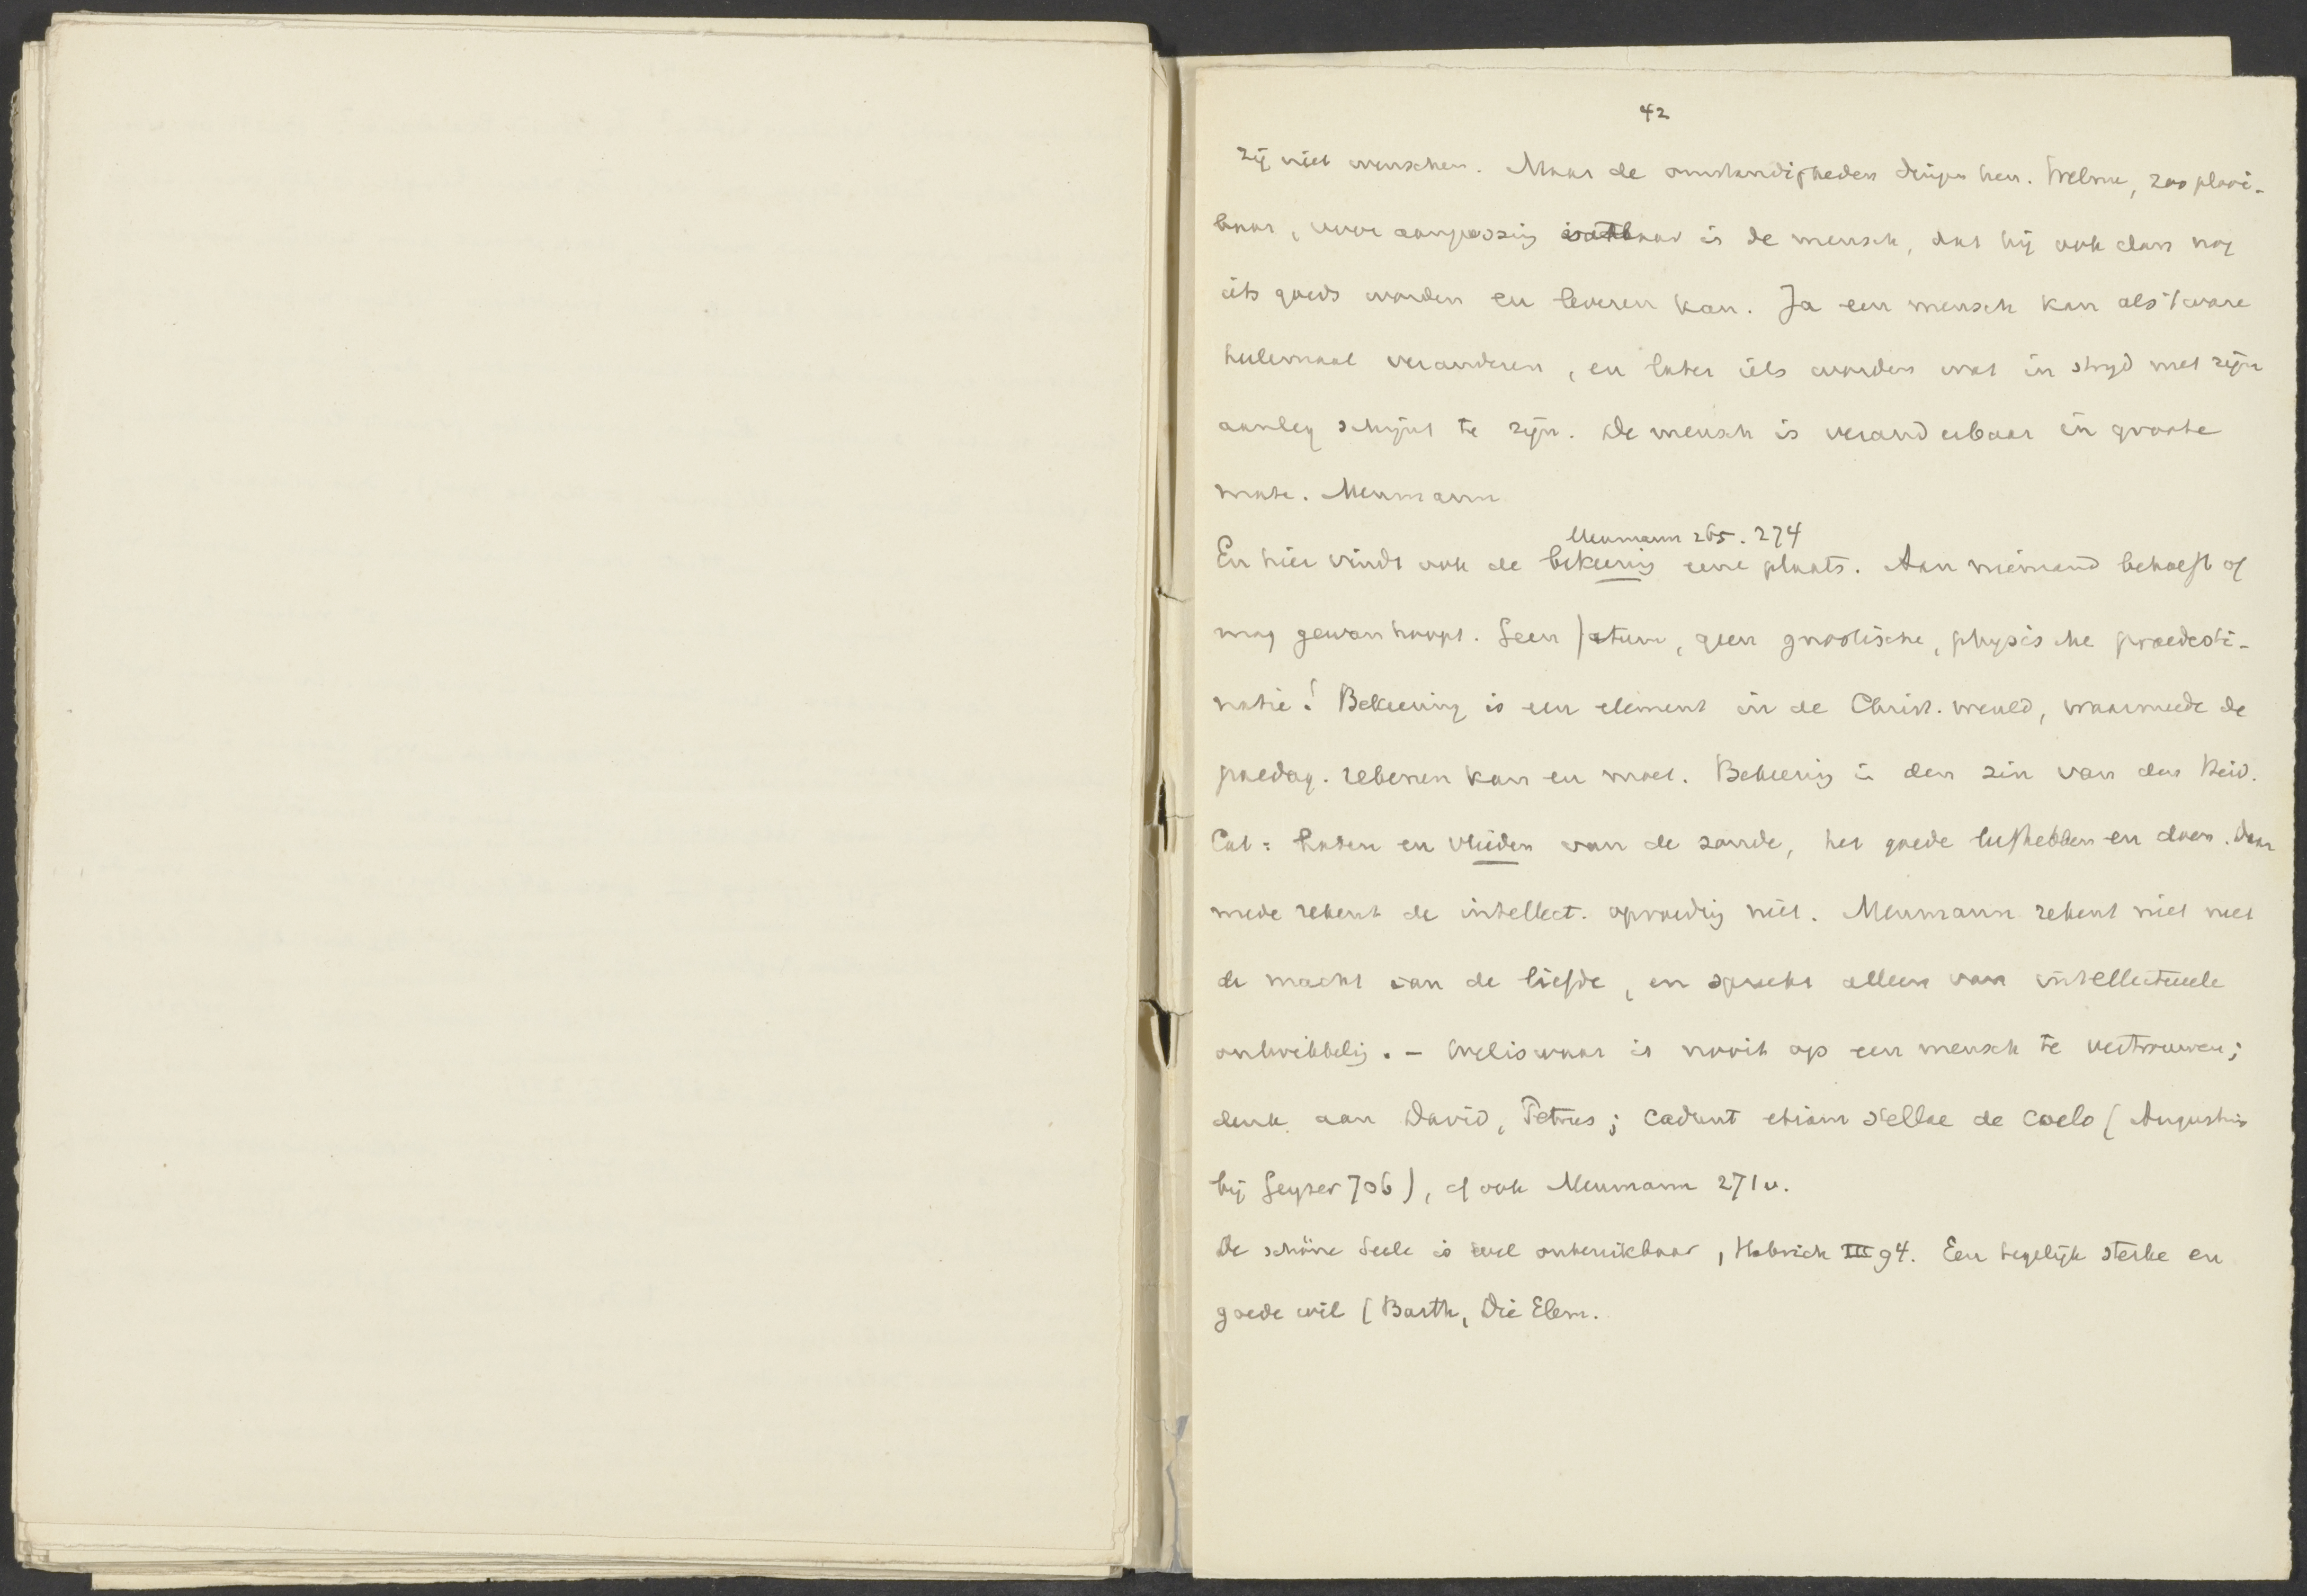 42
zij niet wenschen. Maar de omstandigheden dringen hen. Welnu, zoo plooi-
baar, voor aanpassing vatbaar is de mensch, dat hij ook dan nog
iets goeds worden en leveren kan. Ja een mensch kan als 't ware
heelemaal veranderen, en later iets worden wat in strijd met zijn
aanleg schijnt te zijn. De mensch is veranderbaar in groote
mate. Meumann
Meumann 265. 274
En hier vindt ook de bekeering eene plaats. Aan niemand behoeft of
mag gewanhoopt. Geen fatum, geen gnostische, physische praedesti-
natie! Bekeering is een element in de Christ. wereld, waarmede de
paedag. rekenen kan en moet. Bekeering in den zin van den Heid.
Cat: haten en vlieden van de zonde, het goede liefhebben en doen. Daar
mede rekent de intellect. opvoeding niet. Meumann rekent niet met
de macht van de liefde, en spreekt alleen van intellectueele
ontwikkeling. - Weliswaar is nooit op een mensch te vertrouwen;
denk aan David, Petrus; cadunt etiam stellae de coelo (Augustinus
bij Geyser 706), cf ook Meumann 271v.
De schöne Seele is wel onbereikbaar, Habrich III 94. Een tegelijk sterke en
goede wil (Barth, Die Elem.